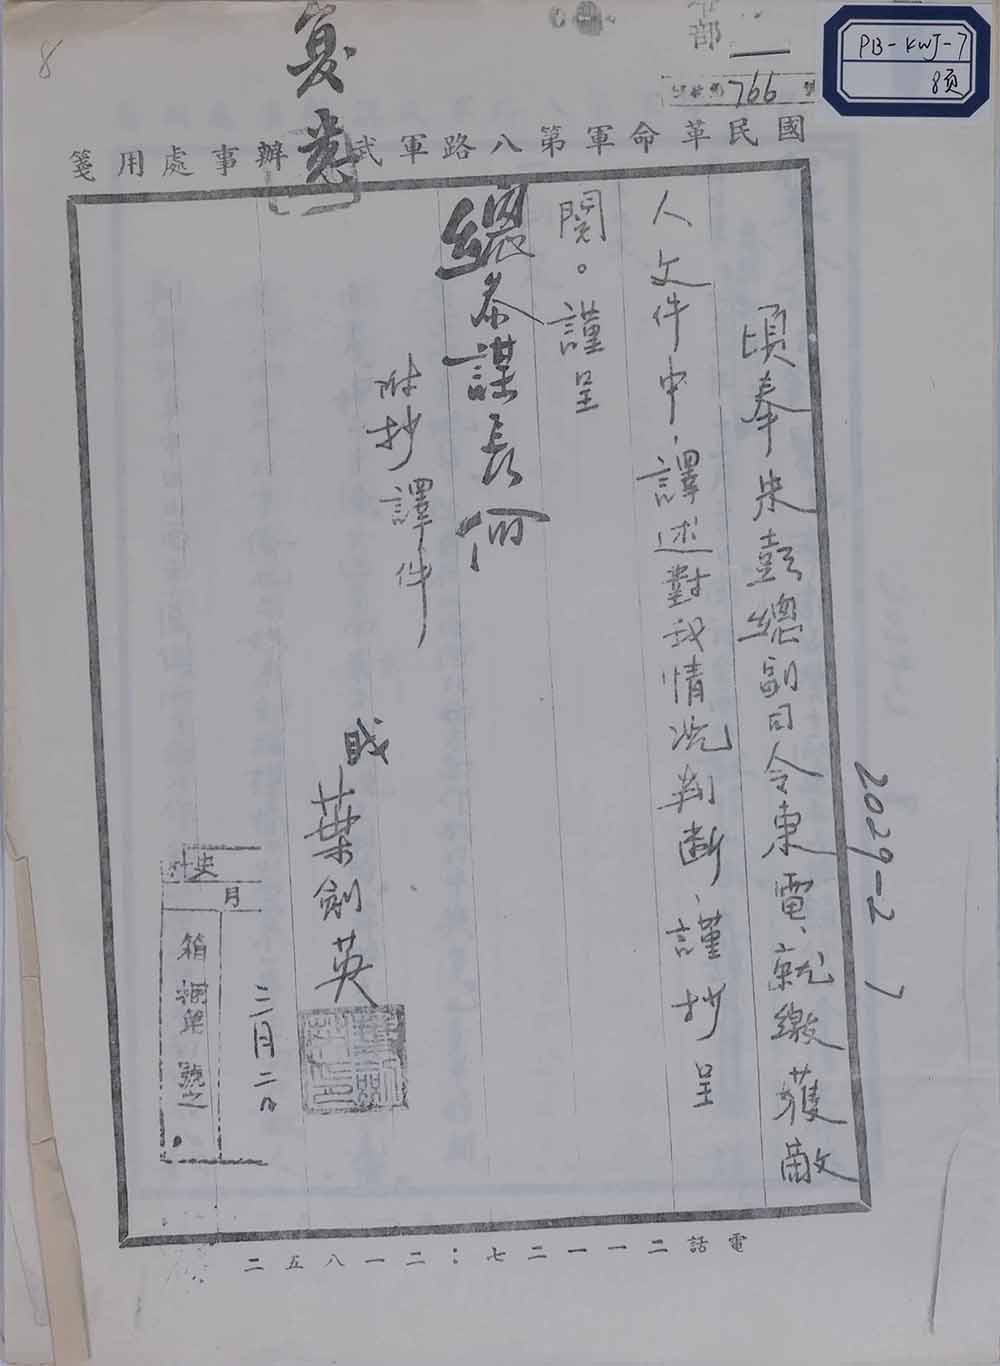 8
PB-KWJ-7
8页
部
766 號
國民革命軍第八路軍武 辦事處用箋
复悉
頃奉朱彭總副司令東電、就繳獲敵
人文件中、譯述對我情况判断、謹抄呈
閱。謹呈
總參謀長何
附抄譯件
職
葉劍英
三月二日
史
月
箱 捆第 號之
2029-2 7
電話二一一二七;二一八五二